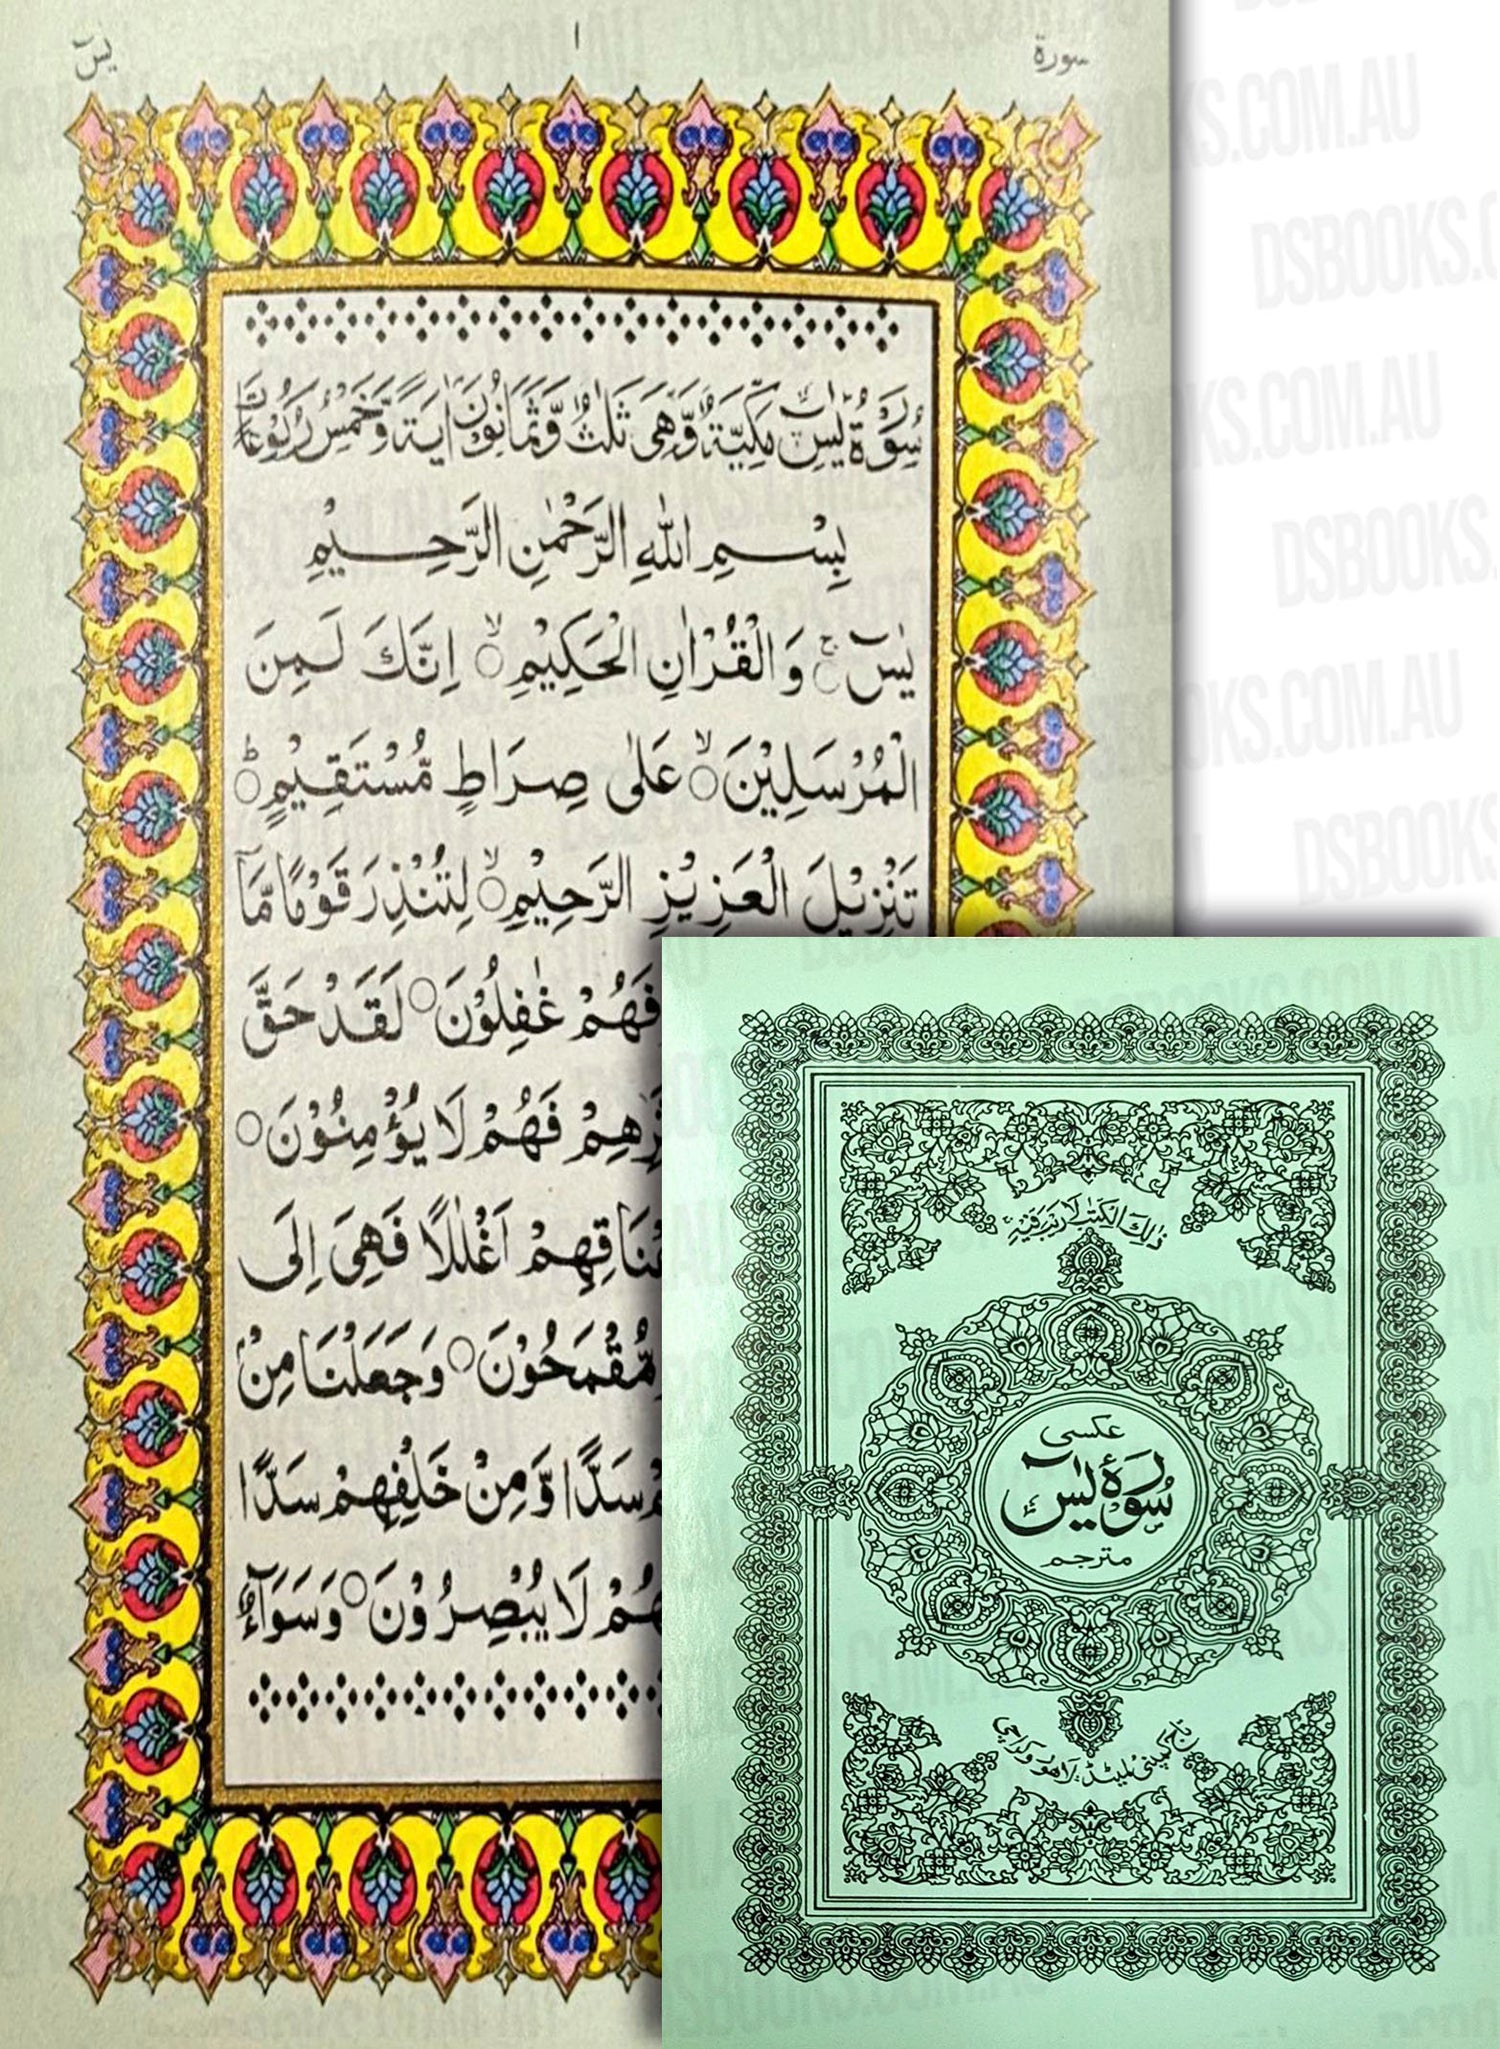 سورة
١
يٰسٓ
سُوْرَةُ يٰسٓ مَكِّيَّةٌ وَّهِيَ ثَلٰثٌ وَّثَمَانُوْنَ اٰيَةً وَّخَمْسُ رُكُوْعَاتٍ
بِسْمِ اللّٰهِ الرَّحْمٰنِ الرَّحِيْمِ
يٰسٓ ۚ وَالْقُرْاٰنِ الْحَكِيْمِ ۙ اِنَّكَ لَمِنَ
الْمُرْسَلِيْنَ ۙ عَلٰى صِرَاطٍ مُّسْتَقِيْمٍ ؕ
تَنْزِيْلَ الْعَزِيْزِ الرَّحِيْمِ ۙ لِتُنْذِرَ قَوْمًا مَّآ
فَهُمْ غٰفِلُوْنَ ○ لَقَدْ حَقَّ
ثَرِهِمْ فَهُمْ لَا يُؤْمِنُوْنَ ○
عْنَاقِهِمْ اَغْلٰلًا فَهِيَ اِلَى
مُّقْمَحُوْنَ ○ وَجَعَلْنَا مِنْۢ
مْ سَدًّا وَّمِنْ خَلْفِهِمْ سَدًّا
هُمْ لَا يُبْصِرُوْنَ ○ وَسَوَآءٌ
ذٰلِكَ الْكِتٰبُ لَا رَيْبَ فِيْهِ
عکسی
سُوْرَۂ یٰسٓ
مترجم
تاج کمپنی لمیٹڈ لاہور و کراچی
DSBOOKS.COM.AU